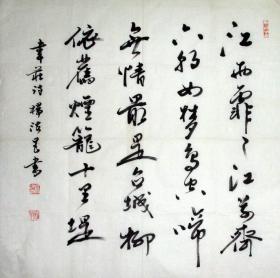 江雨霏々江草齊
六朝如夢鳥空啼
無情最是台城柳
依舊煙籠十里堤
韋莊詩 書